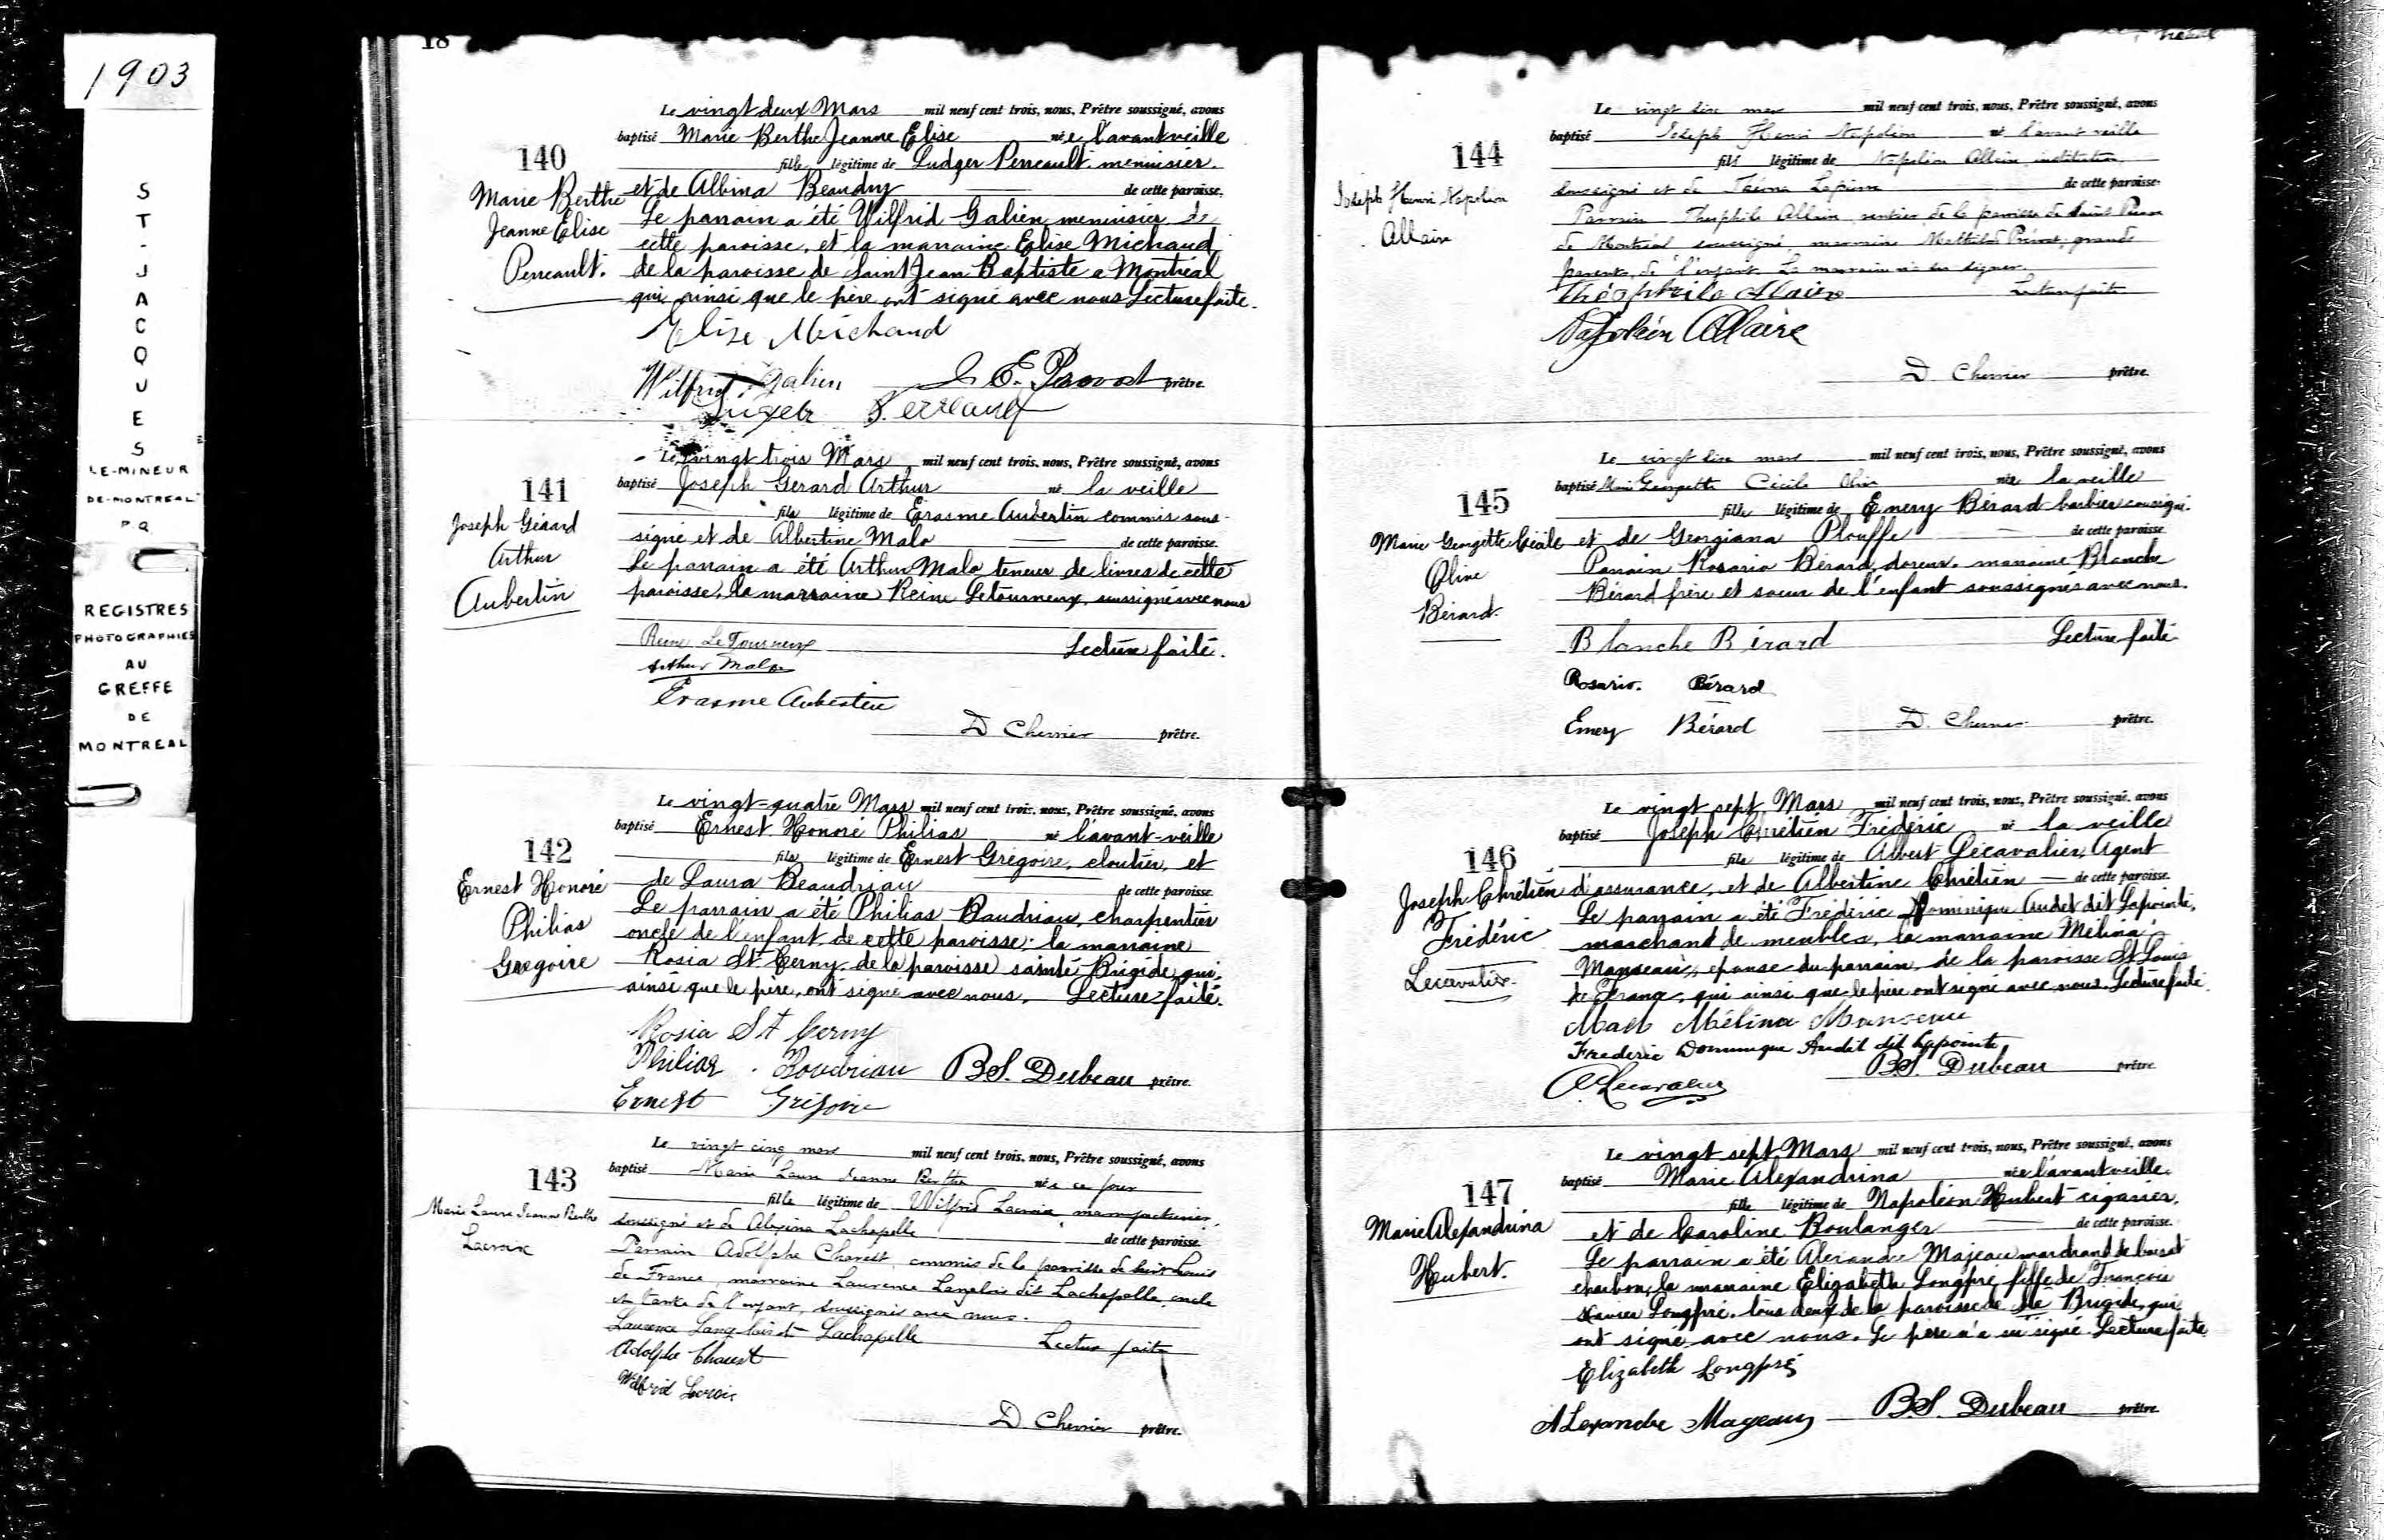 1903
ST-JACQUES
LE-MINEUR
DE-MONTREAL
P.Q
REGISTRES
PHOTOGRAPHIES
AU
GREFFE
DE
MONTREAL
18
140
Marie Berthe
Jeanne Elise
Perreault.
Le vingt deux Mars mil neuf cent trois, nous, Prêtre soussigné, avons
baptisé Marie Berthe Jeanne Elise née l'avant veille
fille légitime de Ludger Perreault menuisier.
et de Albina Beaudry de cette paroisse.
Le parrain a été Wilfrid Galien menuisier de
cette paroisse, et la marraine Elise Michaud
de la paroisse de Saint Jean Baptiste a Montréal
qui ainsi que le père ont signé avec nous Lecture faite.
Elise Michaud
Wilfrid Galien J. E. Provost prêtre.
Ludger Perreault
141
Joseph Gérard
Arthur
Aubertin
Le vingt trois Mars mil neuf cent trois, nous, Prêtre soussigné, avons
baptisé Joseph Gerard Arthur né la veille
fils légitime de Erasme Aubertin commis sous-
signé et de Albertine Malo de cette paroisse.
Le parrain a été Arthur Malo teneur de livres de cette
paroisse, la marraine Reine Letourneux, soussignés avec nous
Reine LeTourneux Lecture faite.
Arthur Malo
Erasme Aubertin
D Cherrier prêtre.
142
Ernest Honoré
Philias
Gregoire
Le vingt-quatre Mars mil neuf cent trois, nous, Prêtre soussigné, avons
baptisé Ernest Honoré Philias né l'avant-veille
fils légitime de Ernest Grégoire, cloutier, et
de Laura Beaudriau de cette paroisse.
Le parrain a été Philias Baudriau, charpentier
oncle de l'enfant, de cette paroisse; la marraine
Rosia St Cerny de la paroisse sainte Brigide, qui,
ainsi que le père, ont signé avec nous. Lecture faite.
Rosia St Cerny
Philias Boudriau B.S. Dubeau prêtre.
Ernest Grégoire
143
Marie Laure Jeanne Berthe
Lacroix
Le vingt cinq mars mil neuf cent trois, nous, Prêtre soussigné, avons
baptisé Marie Laure Jeanne Berthe née ce jour
fille légitime de Wilfrid Lacroix manufacturier,
soussigné et de Alexina Lachapelle de cette paroisse.
Parrain Adolphe Charest, commis de la paroisse de Saint Louis
de France, marraine Laurence Langlois dit Lachapelle, oncle
et tante de l'enfant, soussignés avec nous.
Laurence Langlois dit Lachapelle Lecture faite
Adolphe Charest
Wilfrid Lacroix
D. Cherrier prêtre.
144
Joseph Henri Napoléon
Allaire
Le vingt six mars mil neuf cent trois, nous, Prêtre soussigné, avons
baptisé Joseph Henri Napoléon né l'avant veille
fils légitime de Napoléon Allaire instituteur
soussigné et de Lapierre de cette paroisse.
Parrain Théophile Allaire, rentier de la paroisse de Saint Pierre
de Montréal soussigné, marraine Mathilde Prévost, grands
parents de l'enfant. La marraine n'a su signer.
Théophile Alaire Lecture faite
Napoléon Allaire
D. Cherrier prêtre.
145
Marie Georgette Cécile
Oline
Bérard.
Le vingt six mars mil neuf cent trois, nous, Prêtre soussigné, avons
baptisé Marie Georgette Cécile Oline née la veille
fille légitime de Emery Bérard barbier soussigné.
et de Georgiana Plouffe de cette paroisse.
Parrain Rosario Bérard, doreur, marraine Blanche
Bérard frère et soeur de l'enfant soussignés avec nous.
Blanche Bérard Lecture faite
Rosario. Bérard
Emery Bérard D. Cherrier prêtre.
146
Joseph Chrétien
Frédéric
Lecavalier.
Le vingt sept Mars mil neuf cent trois, nous, Prêtre soussigné, avons
baptisé Joseph Chrétien Frédéric né la veille
fils légitime de Albert Lecavalier, Agent
d'assurance, et de Albertine Chrétien de cette paroisse.
Le parrain a été Frédéric Dominique Audet dit Lapointe,
marchand de meubles, la marraine Mélina
Manseau, épouse du parrain, de la paroisse St Louis
de France, qui ainsi que le père ont signé avec nous. Lecture faite.
Mad Mélina Manseau
Frederic Dominique Audet dit Lapointe
B.S. Dubeau prêtre.
A. Lecavalier
147
Marie Alexandrina
Hubert.
Le vingt sept Mars mil neuf cent trois, nous, Prêtre soussigné, avons
baptisé Marie Alexandrina née l'avant veille.
fille légitime de Napoléon Hubert cigarier.
et de Caroline Boulanger de cette paroisse.
Le parrain a été Alexandre Majeau marchand de bois et
charbon, la marraine Elizabeth Longpré fille de François
Xavier Longpré. tous deux de la paroisse de Ste Brigide, qui
ont signé avec nous. Le père n'a su signé. Lecture faite.
Elizabeth Longpré
Alexandre Mageau B.S. Dubeau prêtre.